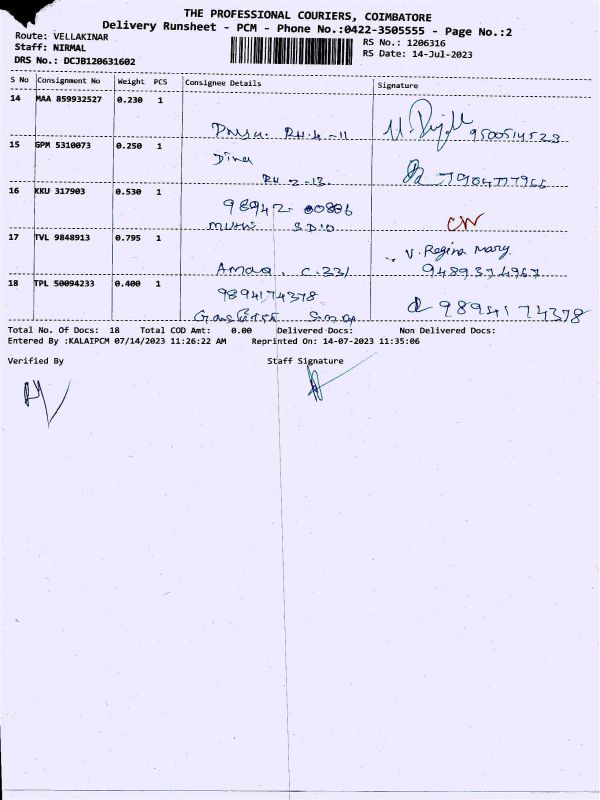 THE PROFESSIONAL COURIERS, COIMBATORE
Delivery Runsheet - PCM - Phone No.:0422-3505555 - Page No.:2
Route: VELLAKINAR
RS No.: 1206316
Staff: NIRMAL
RS Date: 14-Jul-2023
DRS No.: DCJB120631602
S No Consignment No Weight PCS Consignee Details Signature
14 MAA 859932527 0.230 1
RH.4-11 9500514523
15 GPM 5310073 0.250 1
RH 2-13
16 KKU 317903 0.530 1
98942-00886
CW
17 TVL 9848913 0.795 1
V. Regina Mary.
C-331 9489374967
18 TPL 50094233 0.400 1
9894174378
9894174378
Total No. Of Docs: 18 Total COD Amt: 0.00 Delivered Docs: Non Delivered Docs:
Entered By :KALAIPCM 07/14/2023 11:26:22 AM Reprinted On: 14-07-2023 11:35:06
Verified By Staff Signature